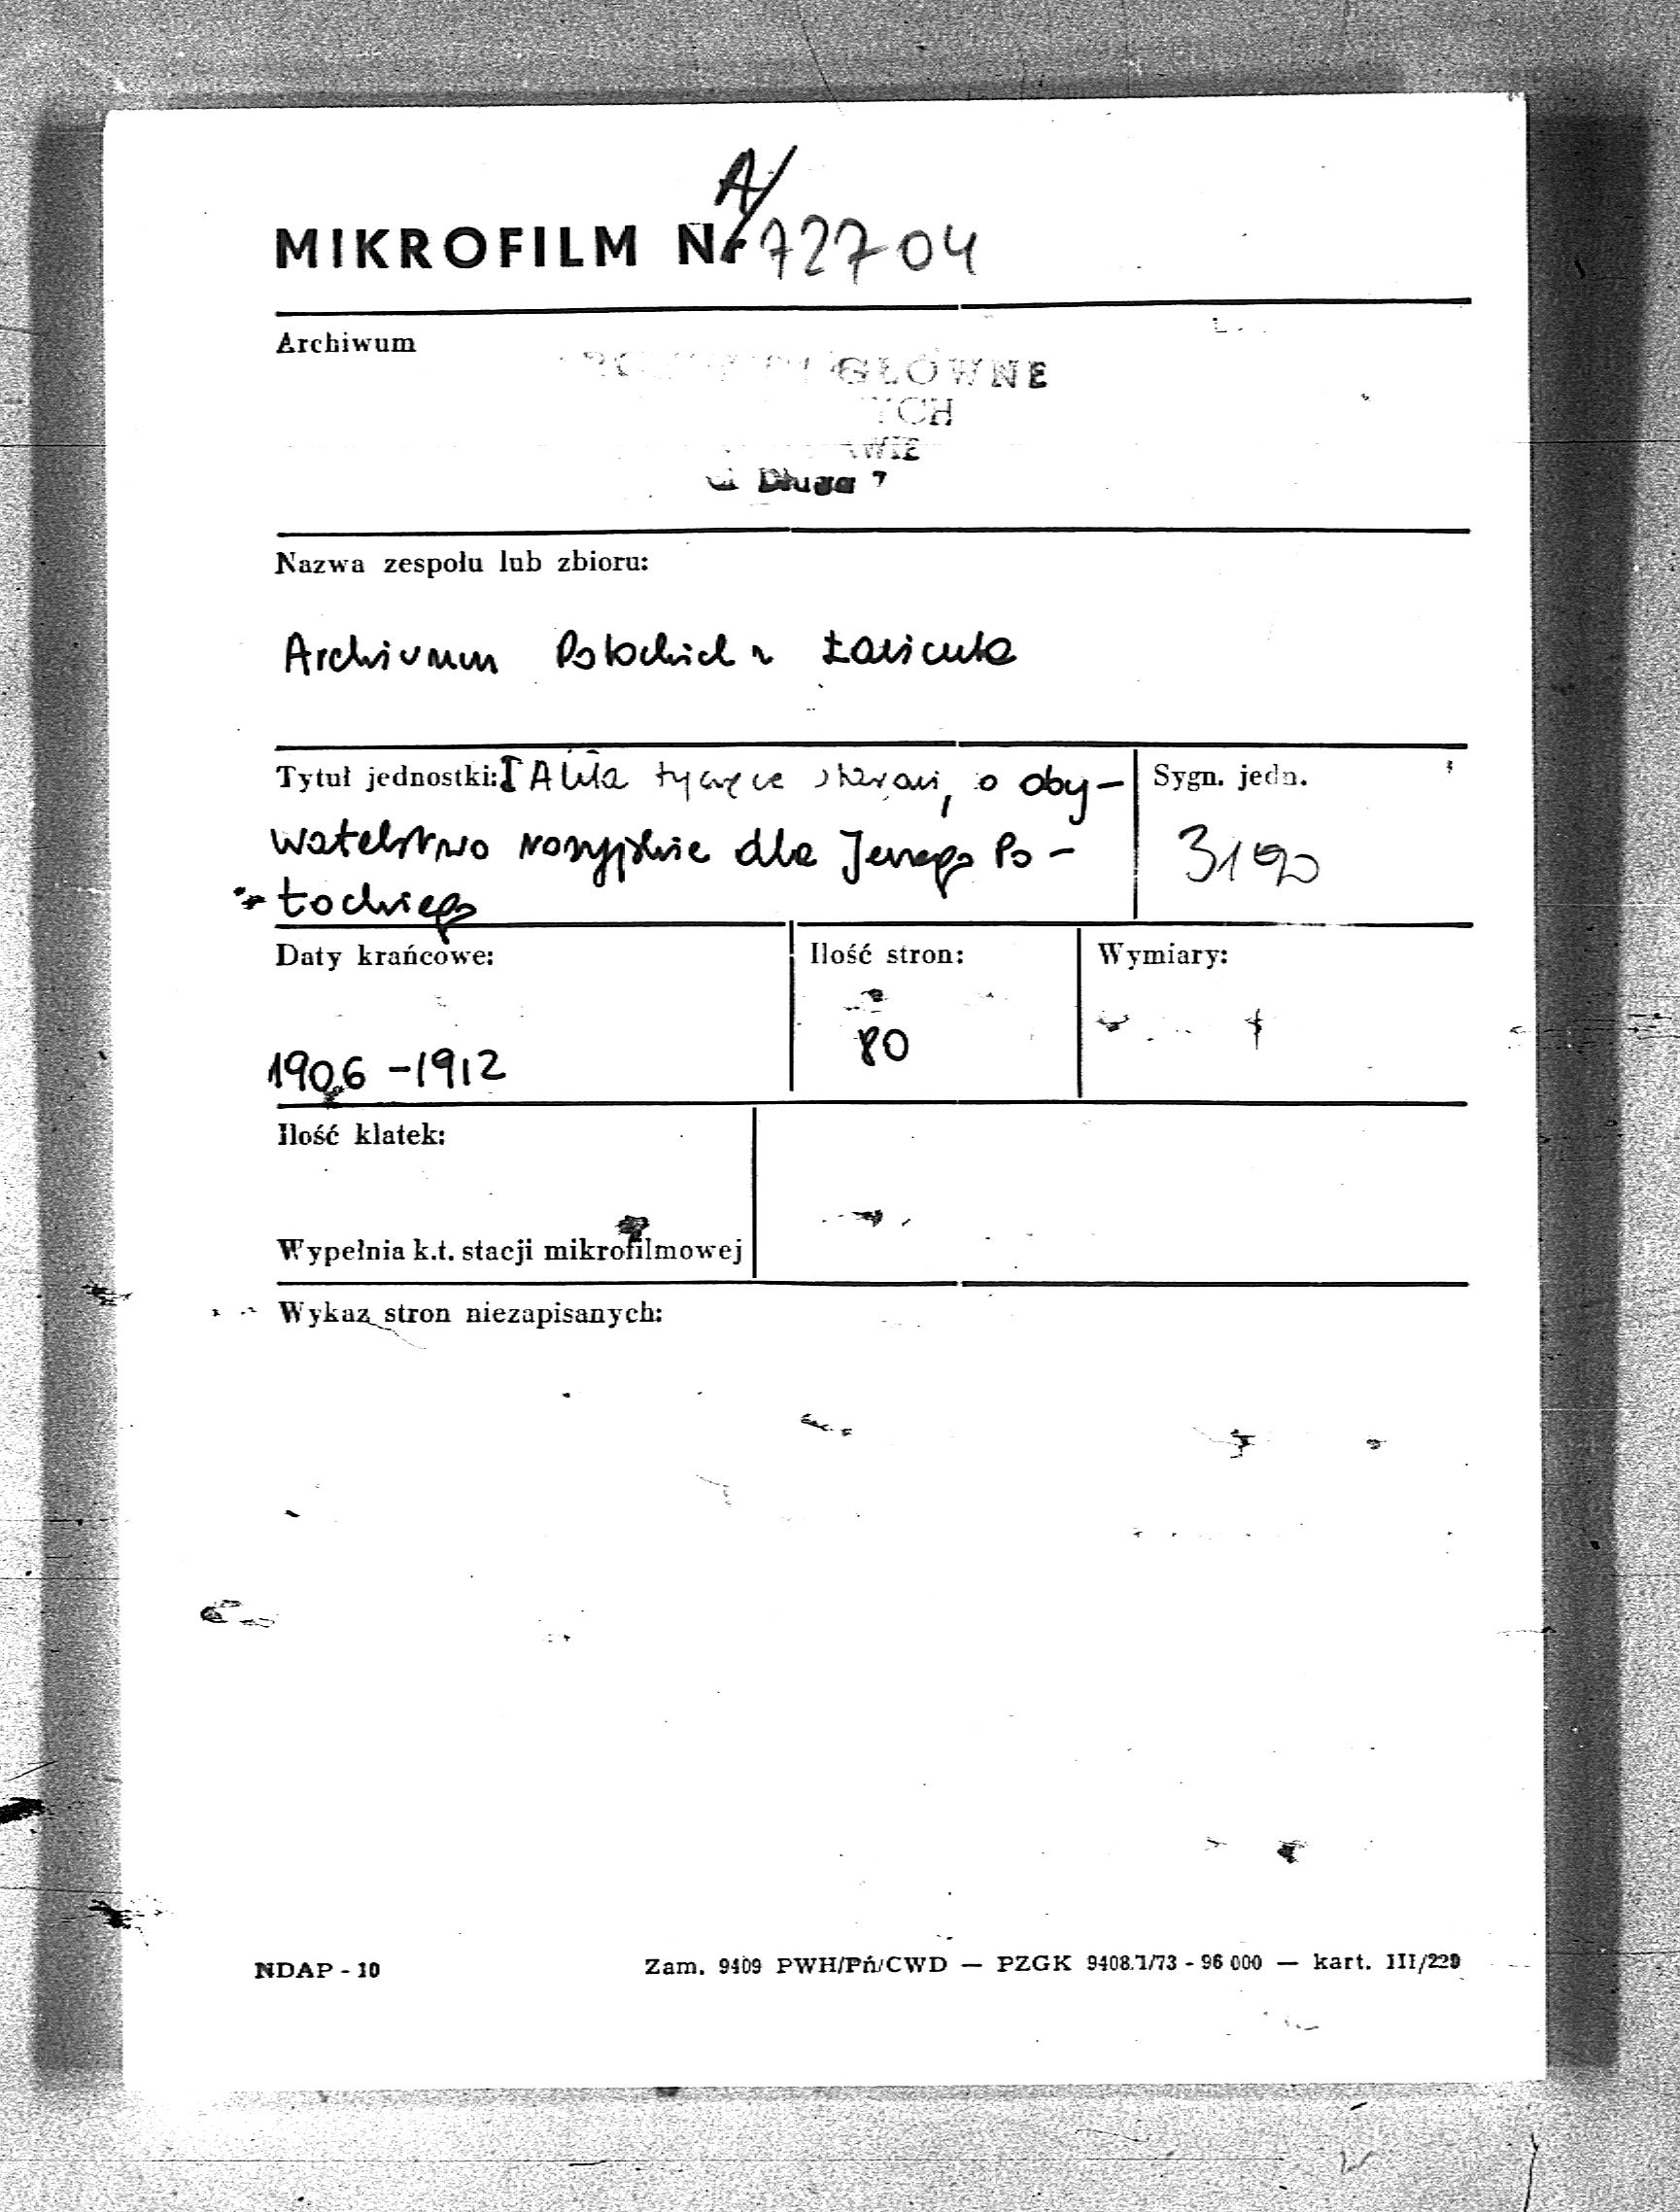 A/
MIKROFILM Nr 72704
Archiwum
GŁÓWNE
YCH
AWIE
ul Długa 7
Nazwa zespołu lub zbioru:
Archiwum Potockich z Łańcuta
Tytuł jednostki: [Akta tyczące starań, o oby-
watelstwo rosyjskie dla Jerzego Po-
tockiego
Sygn. jedn.
3190
Daty krańcowe:
1906 - 1912
Ilość stron:
80
Wymiary:
Ilość klatek:
Wypełnia k.t. stacji mikrofilmowej
Wykaz stron niezapisanych:
NDAP - 10
Zam. 9409 PWH/Pń/CWD — PZGK 9408.1/73 - 96 000 — kart. III/229